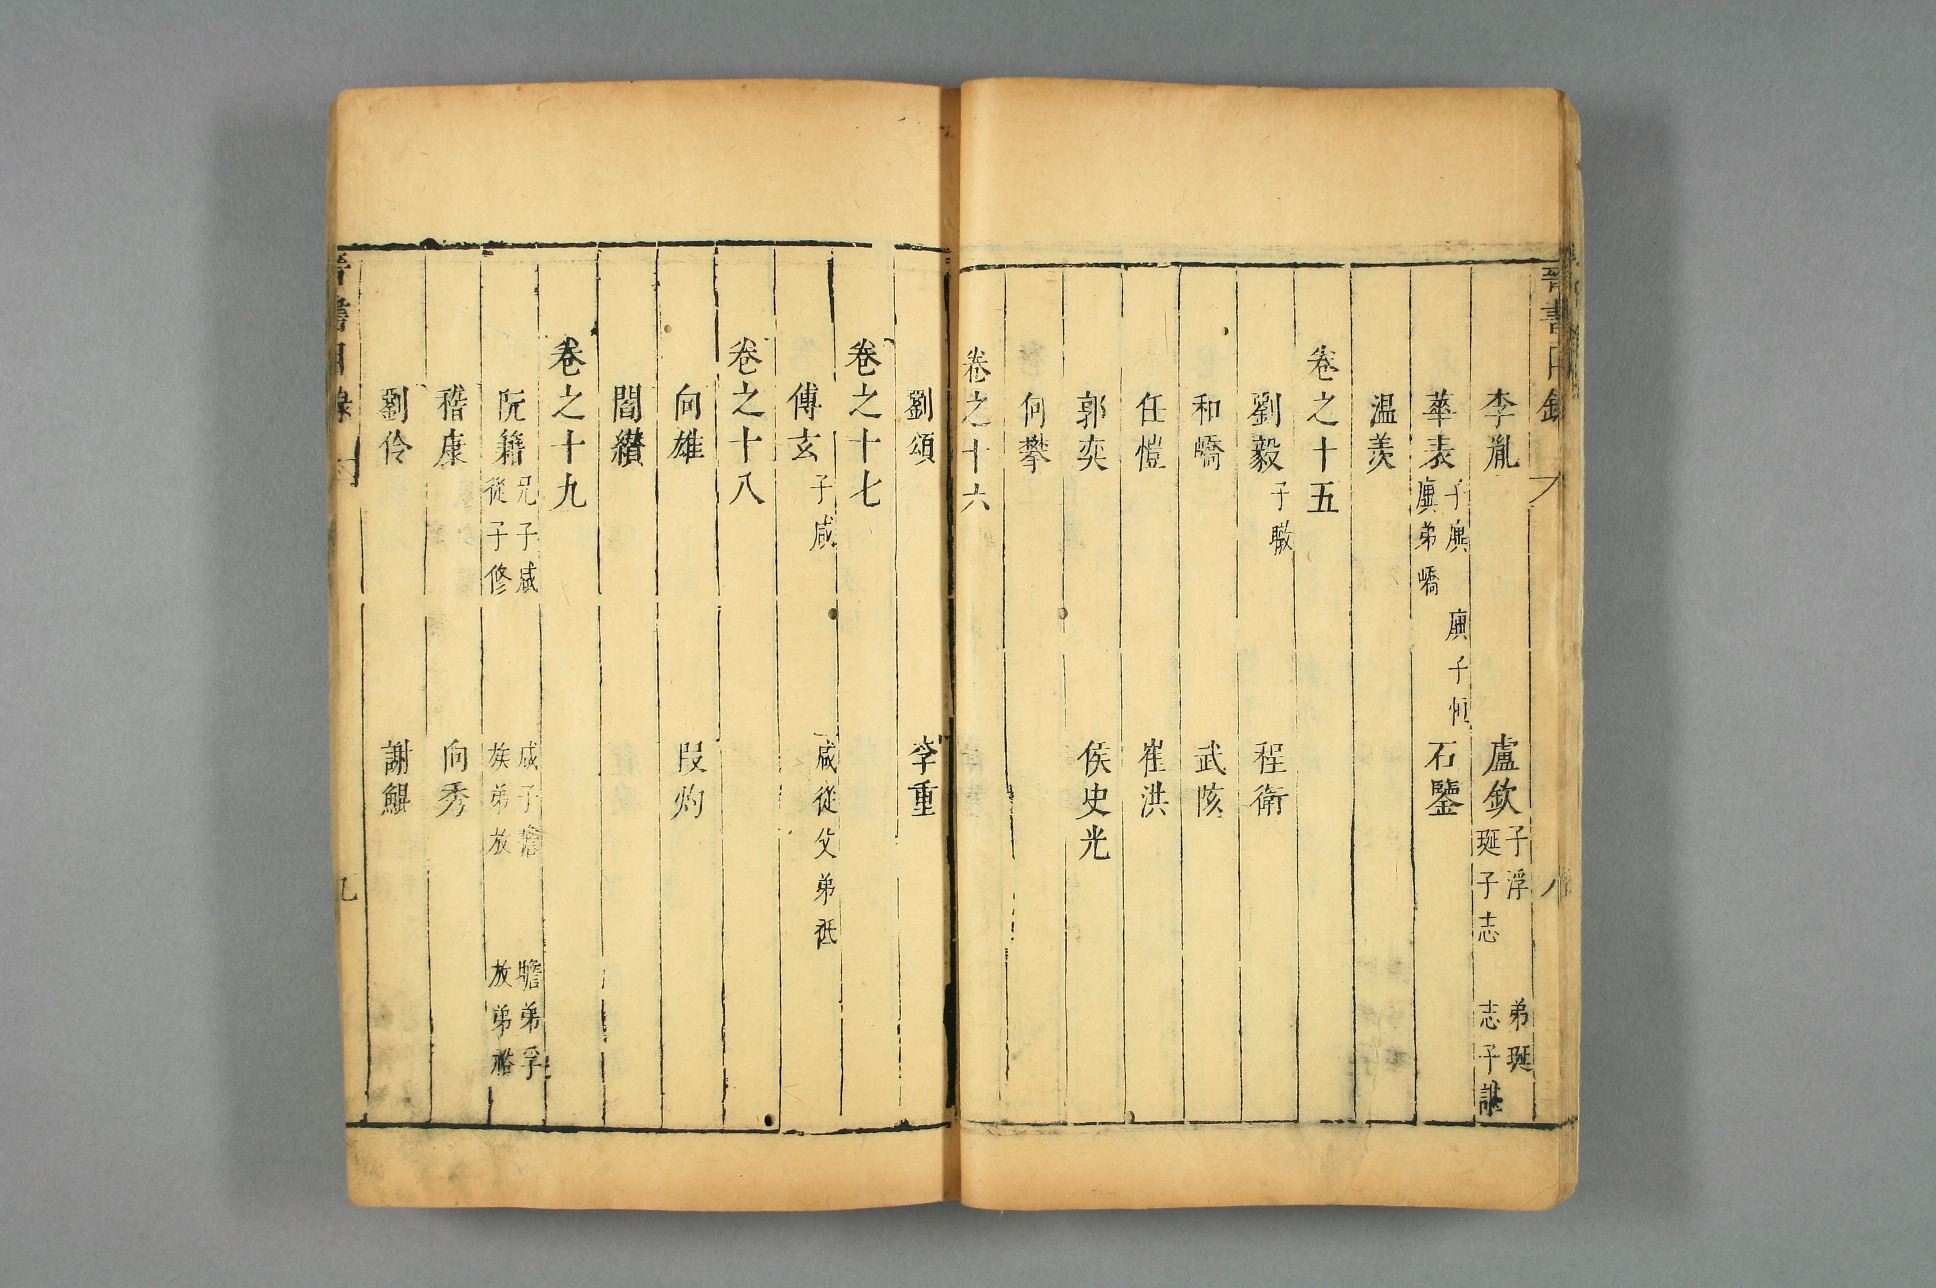 晉書目錄 八
李胤 盧欽 子浮 弟珽 珽子志 志子諶
華表 子廙 廙子恒 廙弟嶠 石鑒
温羨
卷之十五
劉毅 子暾 程衛
和嶠 武陔
任愷 崔洪
郭奕 侯史光
何攀
卷之十六
劉頌 李重
卷之十七
傅玄 子咸 咸從父弟祗
卷之十八
向雄 段灼
閻纘
卷之十九
阮籍 兄子咸 咸子瞻 瞻弟孚 從子修 族弟放 放弟裕
嵇康 向秀
劉伶 謝鯤
晉書目錄 九